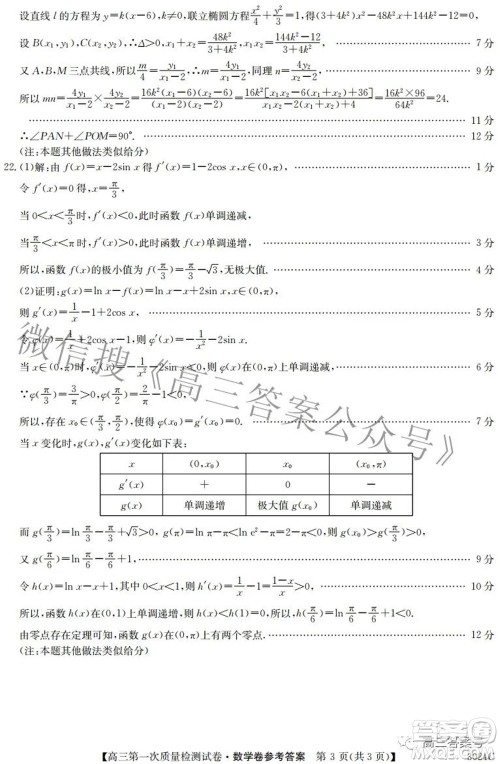 设直线 l 的方程为 y=k(x-6),k≠0,联立椭圆方程x²/4+y²/3=1,得(3+4k²)x²-48k²x+144k²-12=0,
设 B(x₁,y₁),C(x₂,y₂),∴Δ>0,x₁+x₂=48k²/(3+4k²),x₁x₂=(144k²-12)/(3+4k²), 7 分
又 A,B,M 三点共线,所以m/4=y₁/(x₁-2),∴m=4y₁/(x₁-2),同理 n=4y₂/(x₂-2). 9 分
所以 mn=4y₁/(x₁-2)×4y₂/(x₂-2)=16k²(x₁-6)(x₂-6)/((x₁-2)(x₂-2))=16k²[x₁x₂-6(x₁+x₂)+36]/(x₁x₂-2(x₁+x₂)+4)=16k²×96/64k²=24.
11 分
∴∠PAN+∠POM=90°. 12 分
(注:本题其他做法类似给分)
22.(1)解:由 f(x)=x-2sin x 得 f′(x)=1-2cos x,x∈(0,π), 1 分
令 f′(x)=0 得,x=π/3,
当 0<x<π/3时,f′(x)<0,此时函数 f(x)单调递减,
当π/3<x<π 时,f′(x)>0,此时函数 f(x)单调递增, 3 分
所以,函数 f(x)的极小值为 f(π/3)=π/3-√3,无极大值. 4 分
(2)证明:g(x)=ln x-f(x)=ln x-x+2sin x,x∈(0,π),
则 g′(x)=1/x-1+2cos x, 5 分
令 φ(x)=1/x-1+2cos x,则 φ′(x)=-1/x²-2sin x.
当 x∈(0,π)时,φ′(x)=-1/x²-2sin x<0,则 φ(x)在(0,π)上单调递减, 6 分
∵φ(π/3)=3/π>0,φ(π/2)=2/π-1<0,
所以,存在 x₀∈(π/3,π/2),使得 φ(x₀)=g′(x₀)=0. 7 分
当 x 变化时,g(x),g′(x)变化如下表:
x (0,x₀) x₀ (x₀,π)
g′(x) + 0 -
g(x) 单调递增 极大值 g(x₀) 单调递减
而 g(π/3)=ln π/3-π/3+√3>0,g(π)=ln π-π<ln e²-π=2-π<0,则 g(x₀)>g(π/3)>0,
又 g(π/6)=ln π/6-π/6+1, 9 分
令 h(x)=ln x-x+1,其中 0<x<1,则 h′(x)=1/x-1=(1-x)/x>0, 10 分
所以,函数 h(x)在(0,1)上单调递增,则 h(x)<h(1)=0,所以,h(π/6)=ln π/6-π/6+1<0.
由零点存在定理可知,函数 g(x)在(0,π)上有两个零点. 12 分
(注:本题其他做法类似给分)
微信搜《高三答案公众号》
【高三第一次质量检测试卷·数学卷参考答案 第 3 页(共 3 页)】
高三答案号